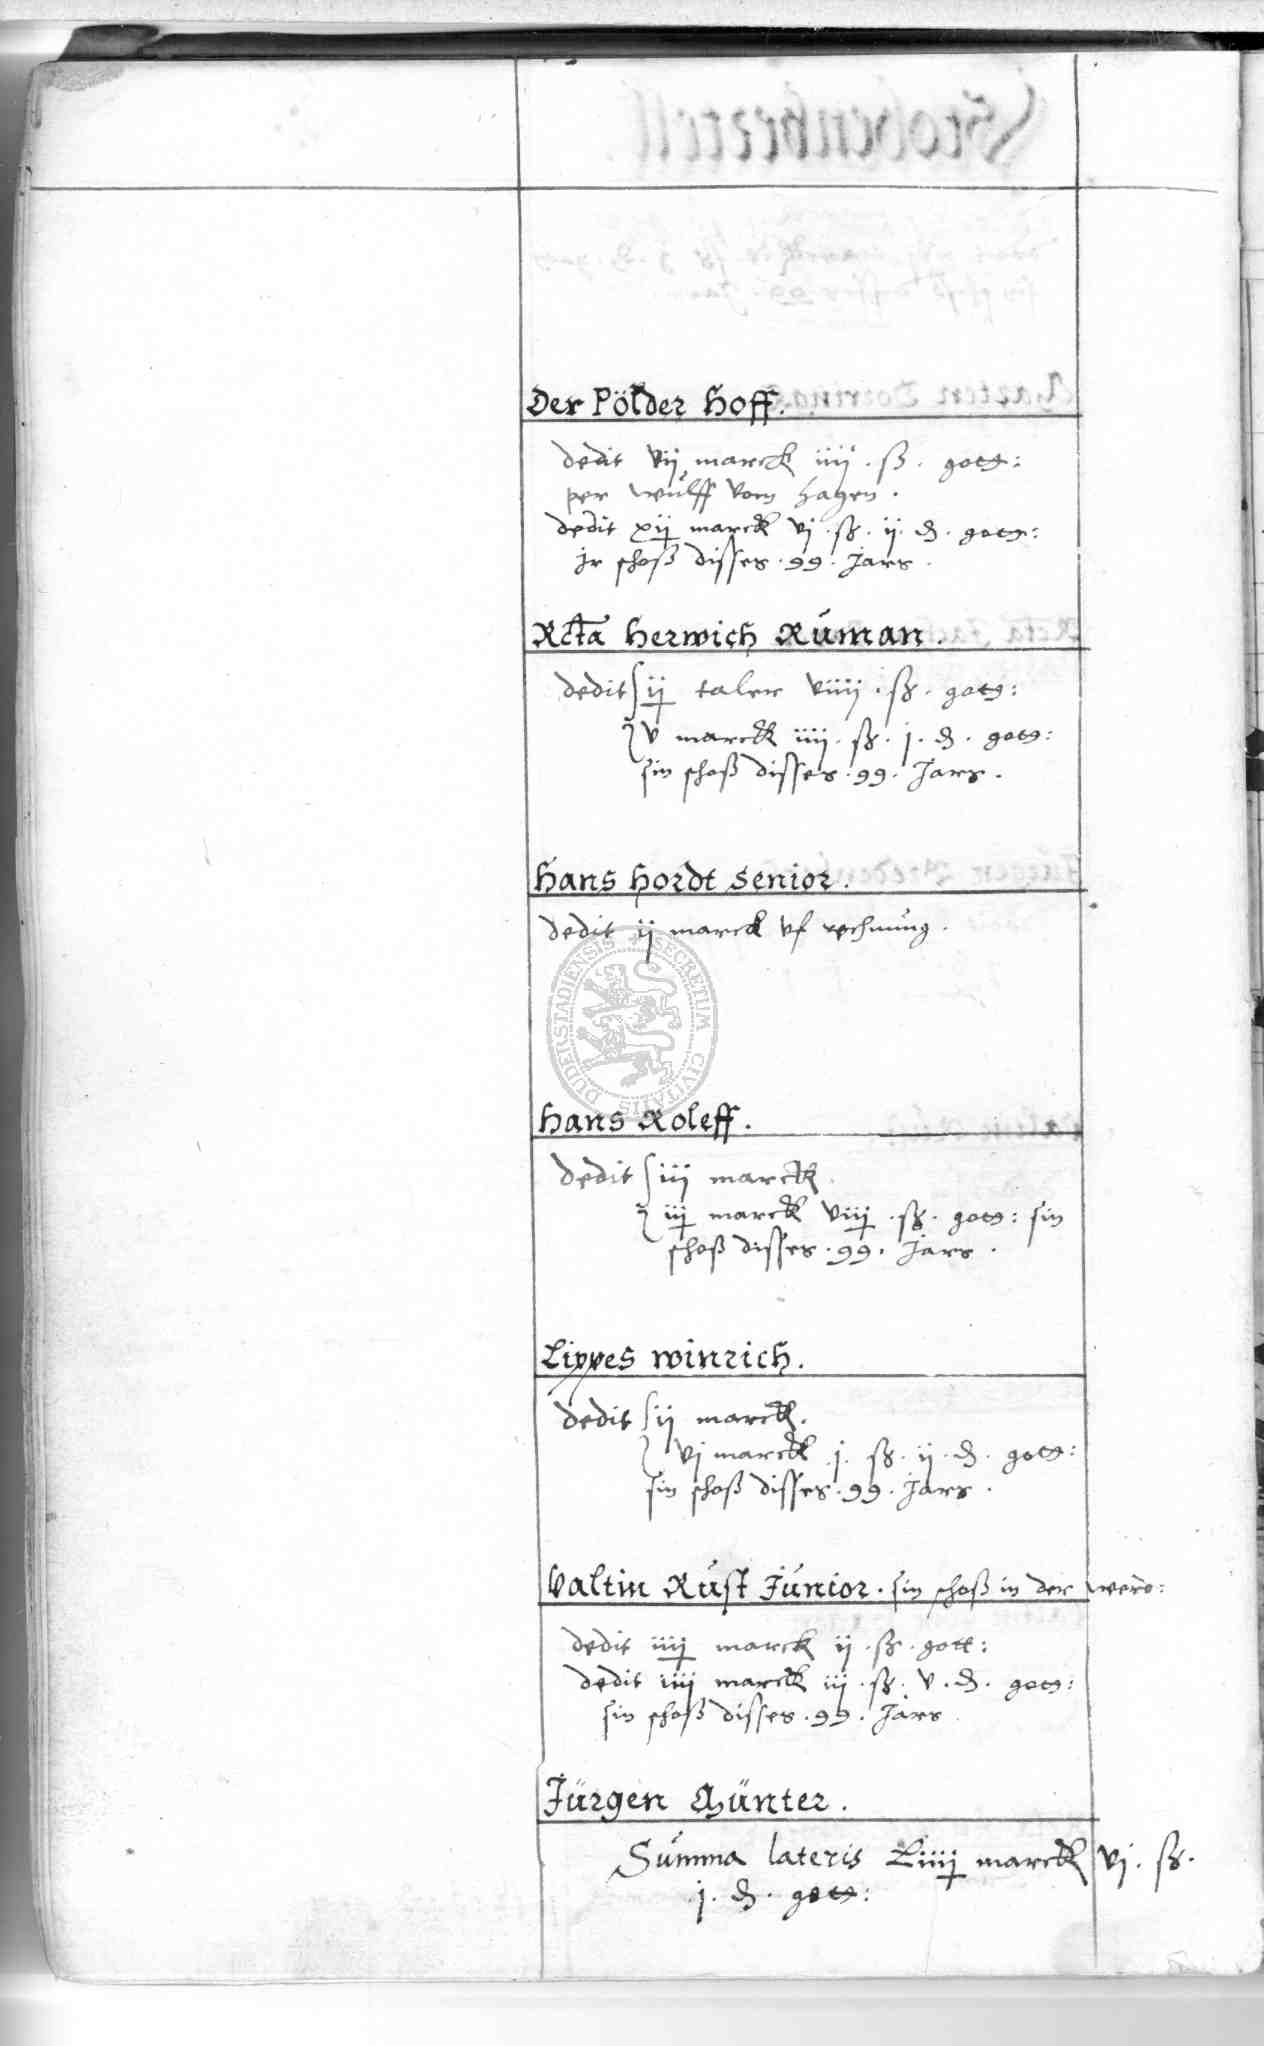 Der Pölder Hoff.
dedit vij marck iiij . ß . gott:
per Wulff vom Hagen .
dedit xij marck vj . ß . ij . d . gott:
jr schoß disses . 99 . Jars .
Rcta Herwich Ruman .
dedit ij taler viiij . ß . gott:
v marck iiij . ß . j . d . gott:
sin schoß disses . 99 . Jars .
Hans Hordt Senior .
dedit ij marck vf rechnung .
DUDERSTADIENSIS * SECRETUM CIVITATIS
Hans Roleff .
dedit iij marck
iij marck viij . ß . gott: sin
schoß disses . 99 . Jars .
Lippes Winrich .
dedit ij marck .
vj marck j . ß . ij . d . gott:
sin schoß disses . 99 . Jars .
Valtin Rust Junior . sin schoß in der
dedit iiij marck ij . ß . gott:
dedit iiij marck iij . ß . v . d . gott:
sin schoß disses . 99 . Jars
Jürgen Günter .
Summa lateris Liiij marck vj . ß .
j . d . gott: